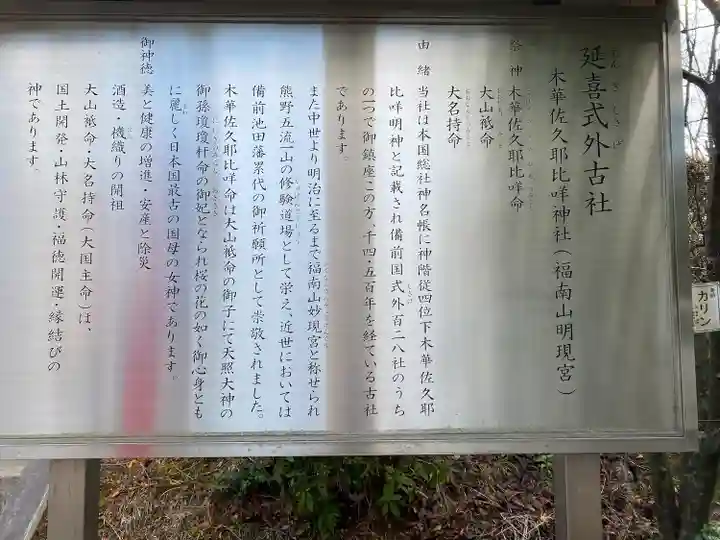 延喜式外古社
木華佐久耶比咩神社(福南山明現宮)
祭神 木華佐久耶比咩命
大山祗命
大名持命
由緒 当社は本国総社神名帳に神階従四位下木華佐久耶
比咩明神と記載され備前国式外百二八社のうち
の一つで御鎮座この方、千四・五百年を経ている古社
であります。
また中世より明治に至るまで福南山妙現宮と称せられ
熊野五流一山の修験道場として栄え、近世においては
備前池田藩累代の御祈願所として崇敬されました。
木華佐久耶比咩命は大山祗命の御子にて天照大神の
御孫瓊瓊杵命の御妃となられ桜の花の如く御心身とも
に麗しく日本国最古の国母の女神であります。
御神徳 美と健康の増進・安産と除災
酒造・機織りの開祖
大山祗命・大名持命(大国主命)は、
国土開発・山林守護・福徳開運・縁結びの
神であります。
カリン